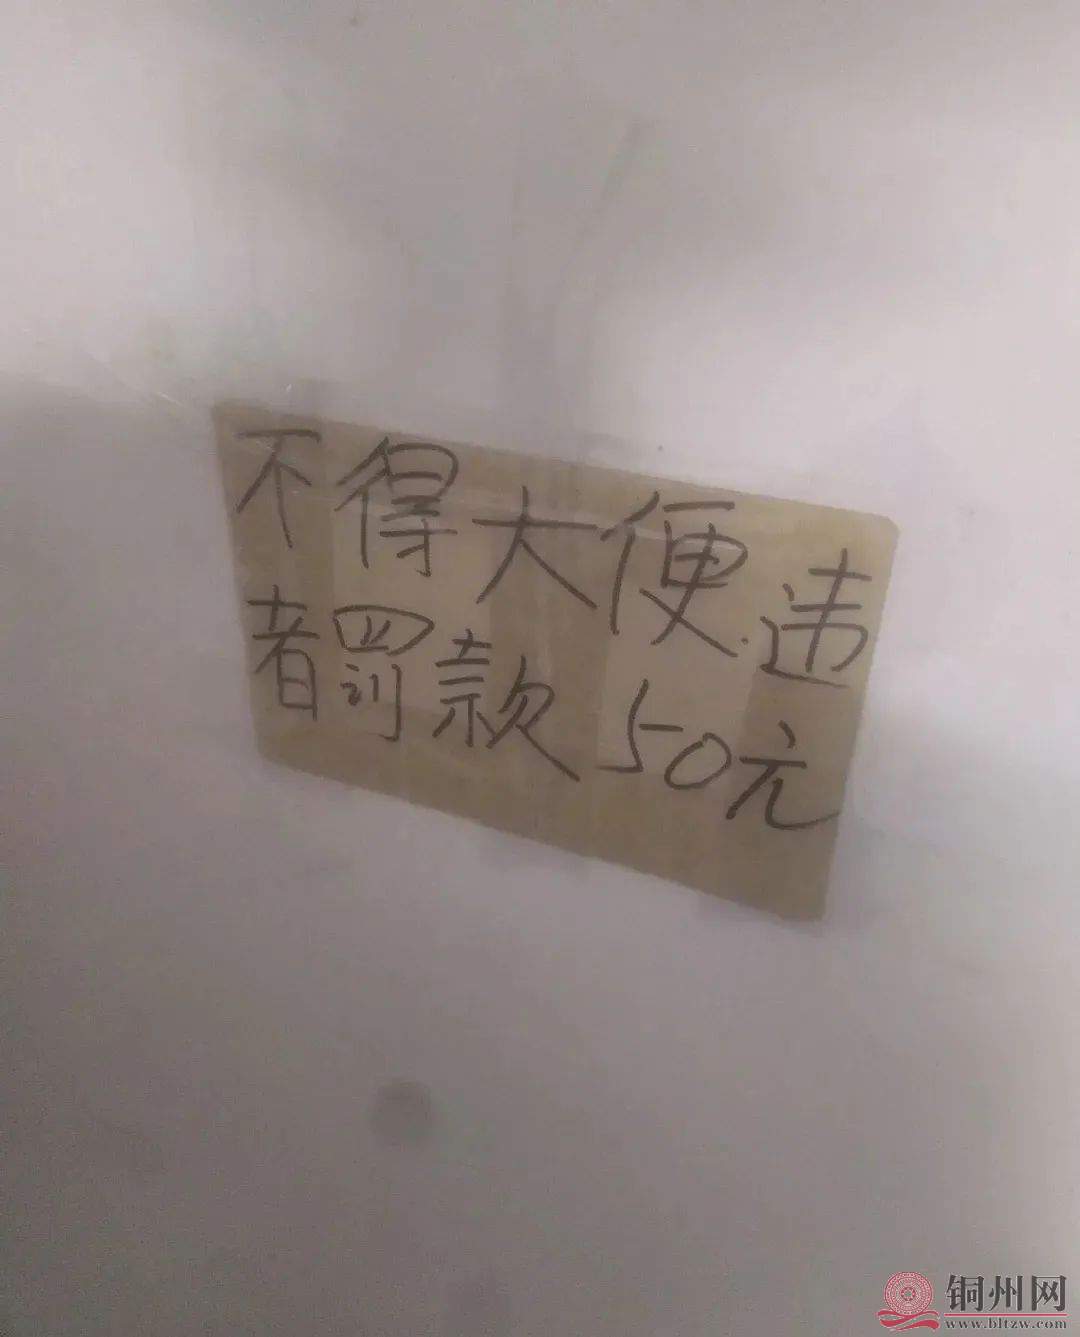 不得大便.违
者罚款50元
铜州网
www.bltzw.com